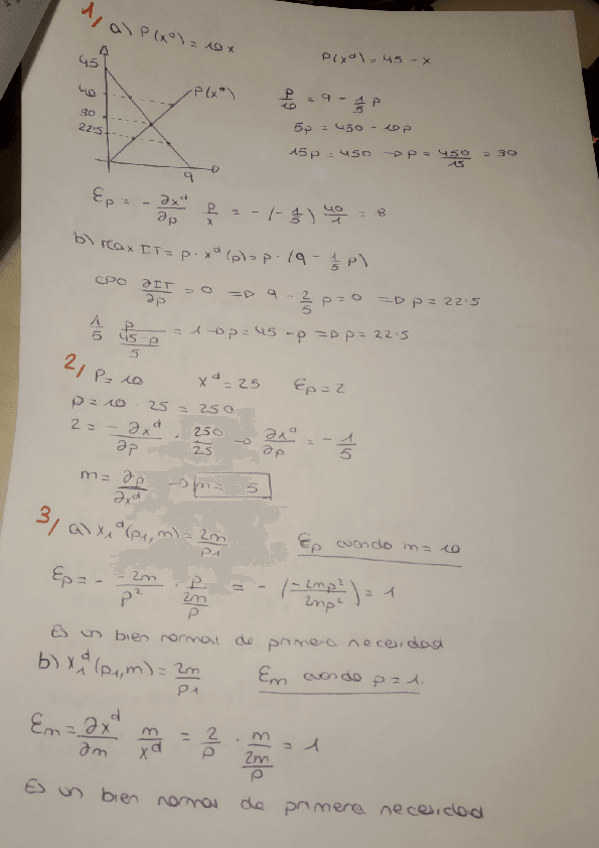 1, a) P(x⁰) = 10x
P(xᵈ) = 45 - x
45
40
30
22.5
P(x⁰)
9
p/10 = 9 - 1/5 p
5p = 450 - 10p
15p = 450 → p = 450/15 = 30
Ep = - ∂xᵈ/∂p p/x = -(-1/5) 40/1 = 8
b) Max IT = p · xᵈ(p) = p · (9 - 1/5 p)
CPO ∂IT/∂p = 0 ⇒ 9 - 2/5 p = 0 ⇒ p = 22.5
1/5 p/((45-p)/5) = 1 → p = 45 - p ⇒ p = 22.5
2, P = 10 xᵈ = 25 Ep = 2
p = 10 · 25 = 250
2 = -∂xᵈ/∂p · 250/25 → ∂xᵈ/∂p = -1/5
m = ∂p/∂xᵈ → m = -5
3, a) x₁ᵈ(p₁, m) = 2m/p₁
Ep cuando m = 10
Ep = - -2m/p² · p/(2m/p) = - (-2mp²/2mp²) = 1
Es un bien normal de primera necesidad
b) x₁ᵈ(p₁, m) = 2m/p₁
Em cuando p = 1.
Em = ∂xᵈ/∂m m/xᵈ = 2/p · m/(2m/p) = 1
Es un bien normal de primera necesidad